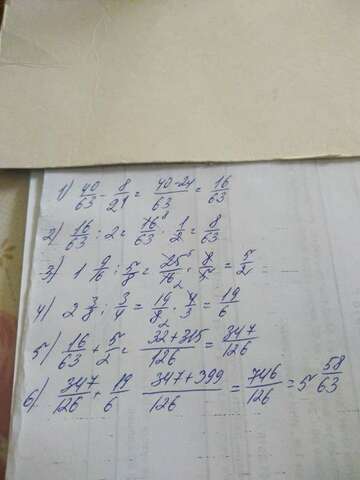 1) 40/63 - 8/21 = 40-24/63 = 16/63
2) 16/63 : 2 = 16/63 · 1/2 = 8/63
3) 1 9/16 : 5/8 = 25/16 · 8/5 = 5/2
4) 2 3/8 : 3/4 = 19/8 · 4/3 = 19/6
5) 16/63 + 5/2 = 32+315/126 = 347/126
6) 347/126 + 19/6 347+399/126 = 746/126 = 5 58/63